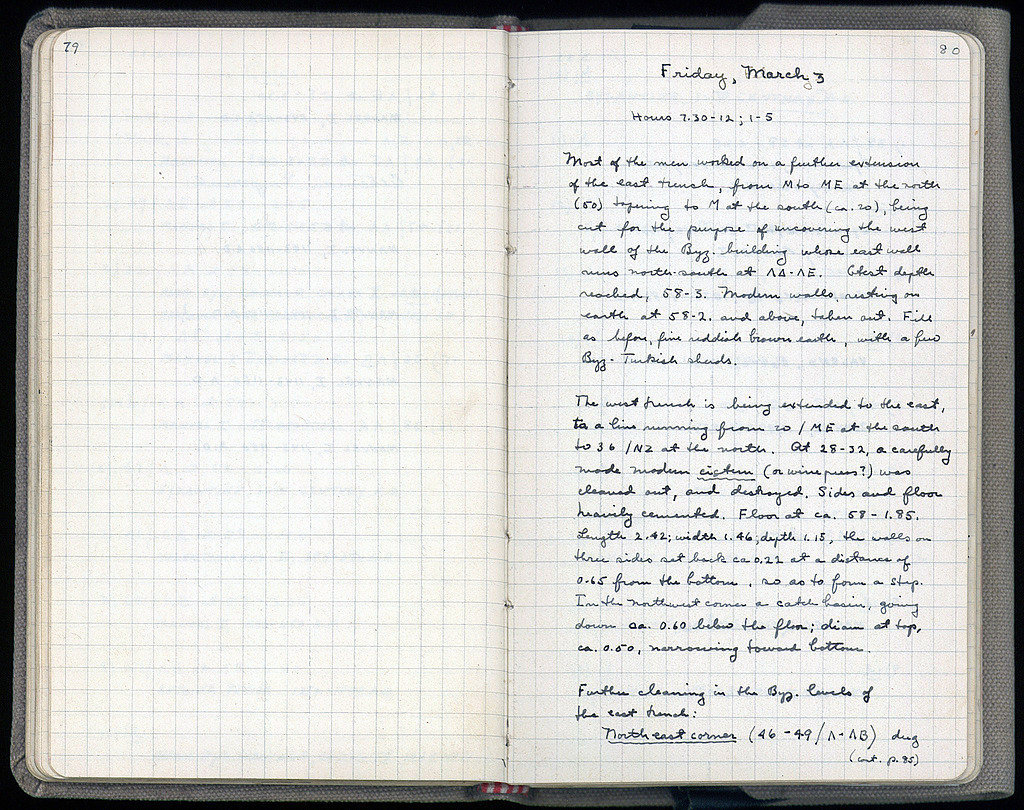 79
80
Friday, March 3
Hours 7.30-12; 1-5
Most of the men worked on a further extension
of the east trench, from M to ME at the north
(50) tapering to M at the south (ca. 20), being
cut for the purpose of uncovering the west
wall of the Byz. building whose east wall
runs north-south at ΛΔ-ΛE. Gtest depth
reached, 58-3. Modern walls, resting on
earth at 58-2. and above, taken out. Fill
as before, fine reddish brown earth, with a few
Byz-Turkish sherds.
The west trench is being extended to the east,
to a line running from 20/ME at the south
to 36/NZ at the north. At 28-32, a carefully
made modern cistern (or wine press?) was
cleaned out, and destroyed. Sides and floor
heavily cemented. Floor at ca. 58-1.85.
Length 2.42; width 1.46; depth 1.15, the walls on
three sides set back ca 0.22 at a distance of
0.65 from the bottom, so as to form a step.
In the northwest corner a catch basin, going
down ca. 0.60 below the floor; diam at top,
ca. 0.50, narrowing toward bottom.
Further cleaning in the Byz. levels of
the east trench:
Northeast corner (46-49/Λ-ΛB) dug
(cont. p. 85)